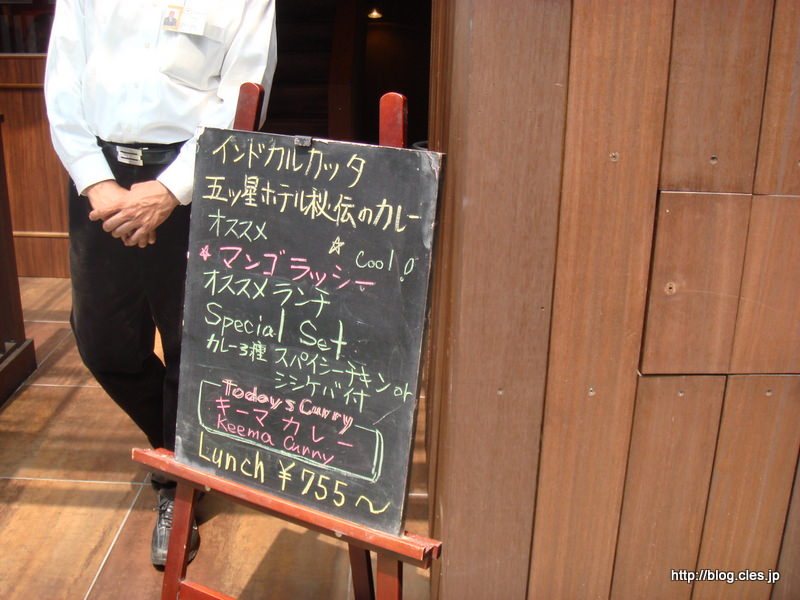 インドカルカッタ
五ツ星ホテル秘伝のカレー
オススメ
☆ cool!
★マンゴラッシー
オススメランチ
Special Set
カレー3種 スパイシーチキン or
シシケバイ付
Today's Curry
キーマ カレー
Keema Curry
Lunch ¥755～
http://blog.cles.jp